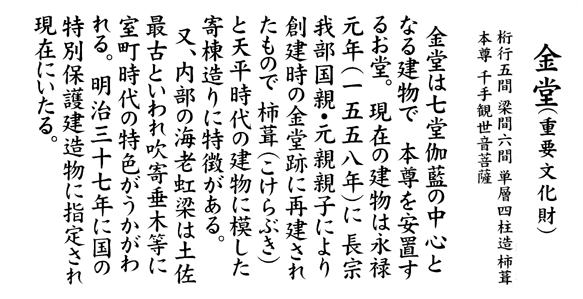 金堂(重要文化財)
桁行五間 梁間六間 単層四柱造 柿葺
本尊 千手観世音菩薩
金堂は七堂伽藍の中心と
なる建物で 本尊を安置す
るお堂。現在の建物は永禄
元年(一五五八年)に 長宗
我部国親・元親親子により
創建時の金堂跡に再建され
たもので 柿葺(こけらぶき)
と天平時代の建物に模した
寄棟造りに特徴がある。
又、内部の海老虹梁は土佐
最古といわれ吹寄垂木等に
室町時代の特色がうかがわ
れる。明治三十七年に国の
特別保護建造物に指定され
現在にいたる。